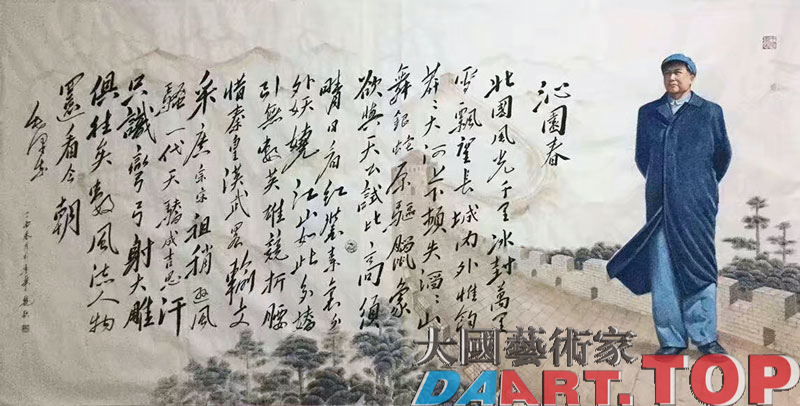 沁園春
北國風光千里冰封萬里
雪飄望長城內外惟餘
莽莽大河上下頓失滔滔山
舞銀蛇原驅臘象
欲與天公試比高須
晴日看紅裝素裹分
外妖嬈 江山如此多嬌
引無數英雄競折腰
惜秦皇漢武畧輸文
采唐宗宋祖稍遜風
騷一代天驕成吉思汗
只識彎弓射大雕
俱往矣數風流人物
還看今朝
毛澤東
大國藝術家
DAART.TOP